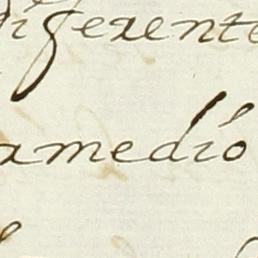 diferente
amedió